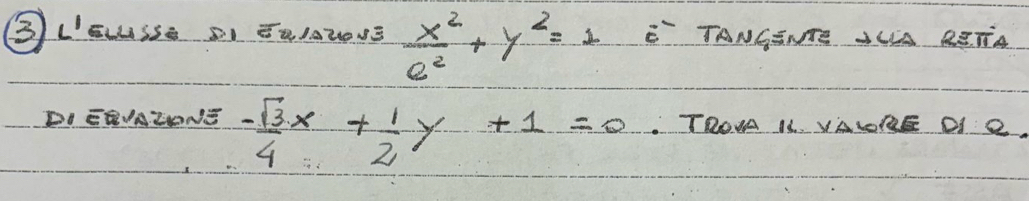 ③ L'ELLISSE DI EQUAZIONE x²/a² + y² = 1 È TANGENTE ALLA RETTA
DI EQUAZIONE -√3/4 x + 1/2 y + 1 = 0. TROVA IL VALORE DI a.